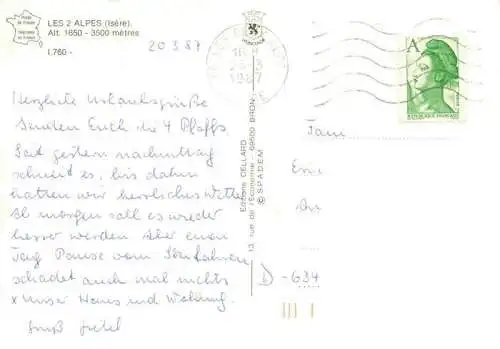 LES 2 ALPES (Isère).
Alt. 1650 - 3500 mètres
I.760 -
20.3.87
Herzliche Urlaubsgrüße
Senden Euch die 4 Pfaffs.
Seit gestern nachmittag
schneit es, bis dahin
hatten wir herrliches Wetter
Ab morgen soll es wieder
besser werden. Aber einen
Tag Pause vom Skifahren
schadet auch mal nichts
x unser Haus und Wohnung.
Gruß
Editions CELLARD
13, rue de l'Économie - 69500 BRON
© S.P.A.D.E.M.
1987
A
REPUBLIQUE FRANÇAISE
Fam.
D - 634